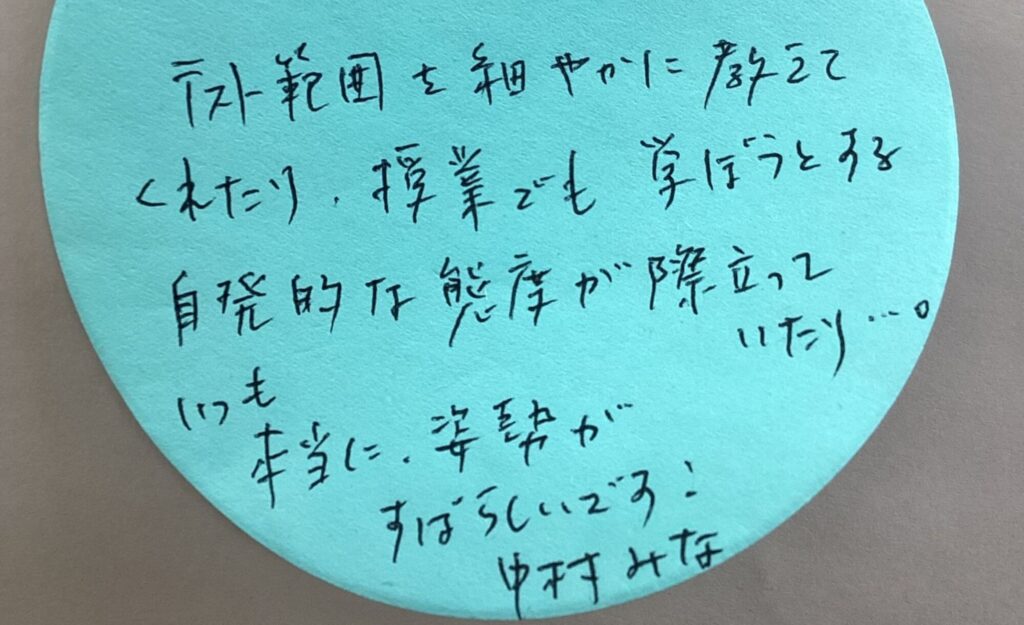 テスト範囲を細やかに教えて
くれたり、授業でも学ぼうとする
自発的な態度が際立って
いたり…。
いつも
本当に、姿勢が
すばらしいです!
中村みな